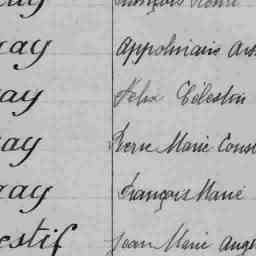 ay François
ay Appolinaire
ay Félix Célestin
ay Pierre Marie
ay François Marie
estif Jean Marie Ang